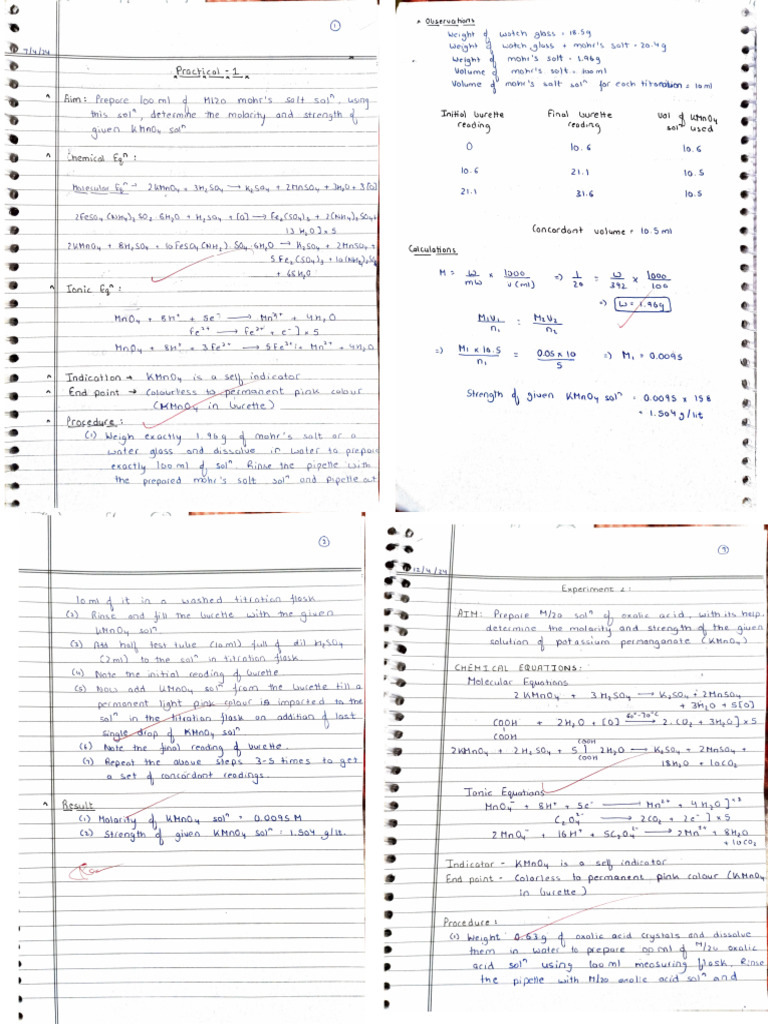 1
7/4/24
Practical - 1
Aim: Prepare 100ml of M/20 mohr's salt solⁿ. using
this solⁿ, determine the molarity and strength of
given KMnO4 solⁿ
Chemical Eqⁿ:
Molecular Eqⁿ → 2KMnO4 + 3H2SO4 → K2SO4 + 2MnSO4 + 3H2O + 5[O]
2FeSO4(NH4)2SO2 6H2O + H2SO4 + [O] → Fe2(SO4)3 + 2(NH4)2SO4 +
13 H2O] × 5
2KMnO4 + 8H2SO4 + 10FeSO4(NH4)2 SO4 6H2O → K2SO4 + 2MnSO4 +
5Fe2(SO4)3 + 10(NH4)2SO4
+ 68H2O
Ionic Eqⁿ:
MnO4⁻ + 8H⁺ + 5e⁻ → Mn²⁺ + 4H2O
Fe²⁺ → Fe³⁺ + e⁻] × 5
MnO4⁻ + 8H⁺ + 5Fe²⁺ → 5Fe³⁺ + Mn²⁺ + 4H2O
Indication → KMnO4 is a self indicator
End point → Colourless to permanent pink colour
(KMnO4 in burette)
Procedure:
(1) Weigh exactly 1.96g of mohr's salt or a
water glass and dissolve in water to prepare
exactly 100ml of solⁿ. Rinse the pipelle with
the prepared mohr's salt solⁿ and pipelle out
Observations
Weight of watch glass = 18.5g
Weight of watch glass + mohr's salt = 20.4g
Weight of mohr's salt = 1.96g
Volume of mohr's salt = 100ml
Volume of mohr's salt solⁿ for each titration = 10ml
Initial burette Final burette Vol of KMnO4
reading reading solⁿ used
0 10.6 10.6
10.6 21.1 10.5
21.1 31.6 10.5
Concordant volume = 10.5ml
Calculations
M = w/mw × 1000/v(ml) ⇒ 1/20 = w/392 × 1000/100
⇒ w = 1.96g
M1V1/n1 = M2V2/n2
⇒ M1 × 10.5/n1 = 0.05 × 10/5 ⇒ M1 = 0.0095
Strength of given KMnO4 solⁿ = 0.0095 × 158
= 1.504 g/lit
2
10ml of it in a washed titration flask
(2) Rinse and fill the burette with the given
KMnO4 solⁿ
(3) Add half test tube (10ml) full of dil H2SO4
(2ml) to the solⁿ in titration flask
(4) Note the initial reading of burette
(5) Now add KMnO4 solⁿ from the burette till a
permanent light pink colour is imparted to the
solⁿ in the titration flask on addition of last
single drop of KMnO4 solⁿ
(6) Note the final reading of burette.
(7) Repeat the above steps 3-5 times to get
a set of concordant readings.
Result
(1) Molarity of KMnO4 solⁿ = 0.0095 M
(2) Strength of given KMnO4 solⁿ = 1.504 g/lt.
3
12/4/24
Experiment 2:
AIM: Prepare M/20 solⁿ of oxalic acid, with its help
determine the molarity and strength of the given
solution of potassium permanganate (KMnO4)
CHEMICAL EQUATIONS:
Molecular Equations
2 KMnO4 + 3 H2SO4 → K2SO4 + 2MnSO4
+ 3H2O + 5[O]
COOH + 2H2O + [O] 60°-70°C → 2.CO2 + 3H2O] × 5
COOH
COOH
2KMnO4 + 2H2SO4 + 5 | 2H2O → K2SO4 + 2MnSO4 +
COOH 18H2O + 10CO2
Ionic Equations
MnO4⁻ + 8H⁺ + 5e⁻ → Mn²⁺ + 4H2O] ×2
C2O4²⁻ → 2CO2 + 2e⁻] × 5
2MnO4⁻ + 16H⁺ + 5C2O4²⁻ → 2Mn²⁺ + 8H2O
+ 10CO2
Indicator - KMnO4 is a self indicator
End point - Colorless to permanent pink colour (KMnO4
in burette)
Procedure:
(1) Weight 0.63g of oxalic acid crystals and dissolve
them in water to prepare 100ml of M/20 oxalic
acid solⁿ using 100ml measuring flask. Rinse
the pipelle with M/20 oxalic acid solⁿ and